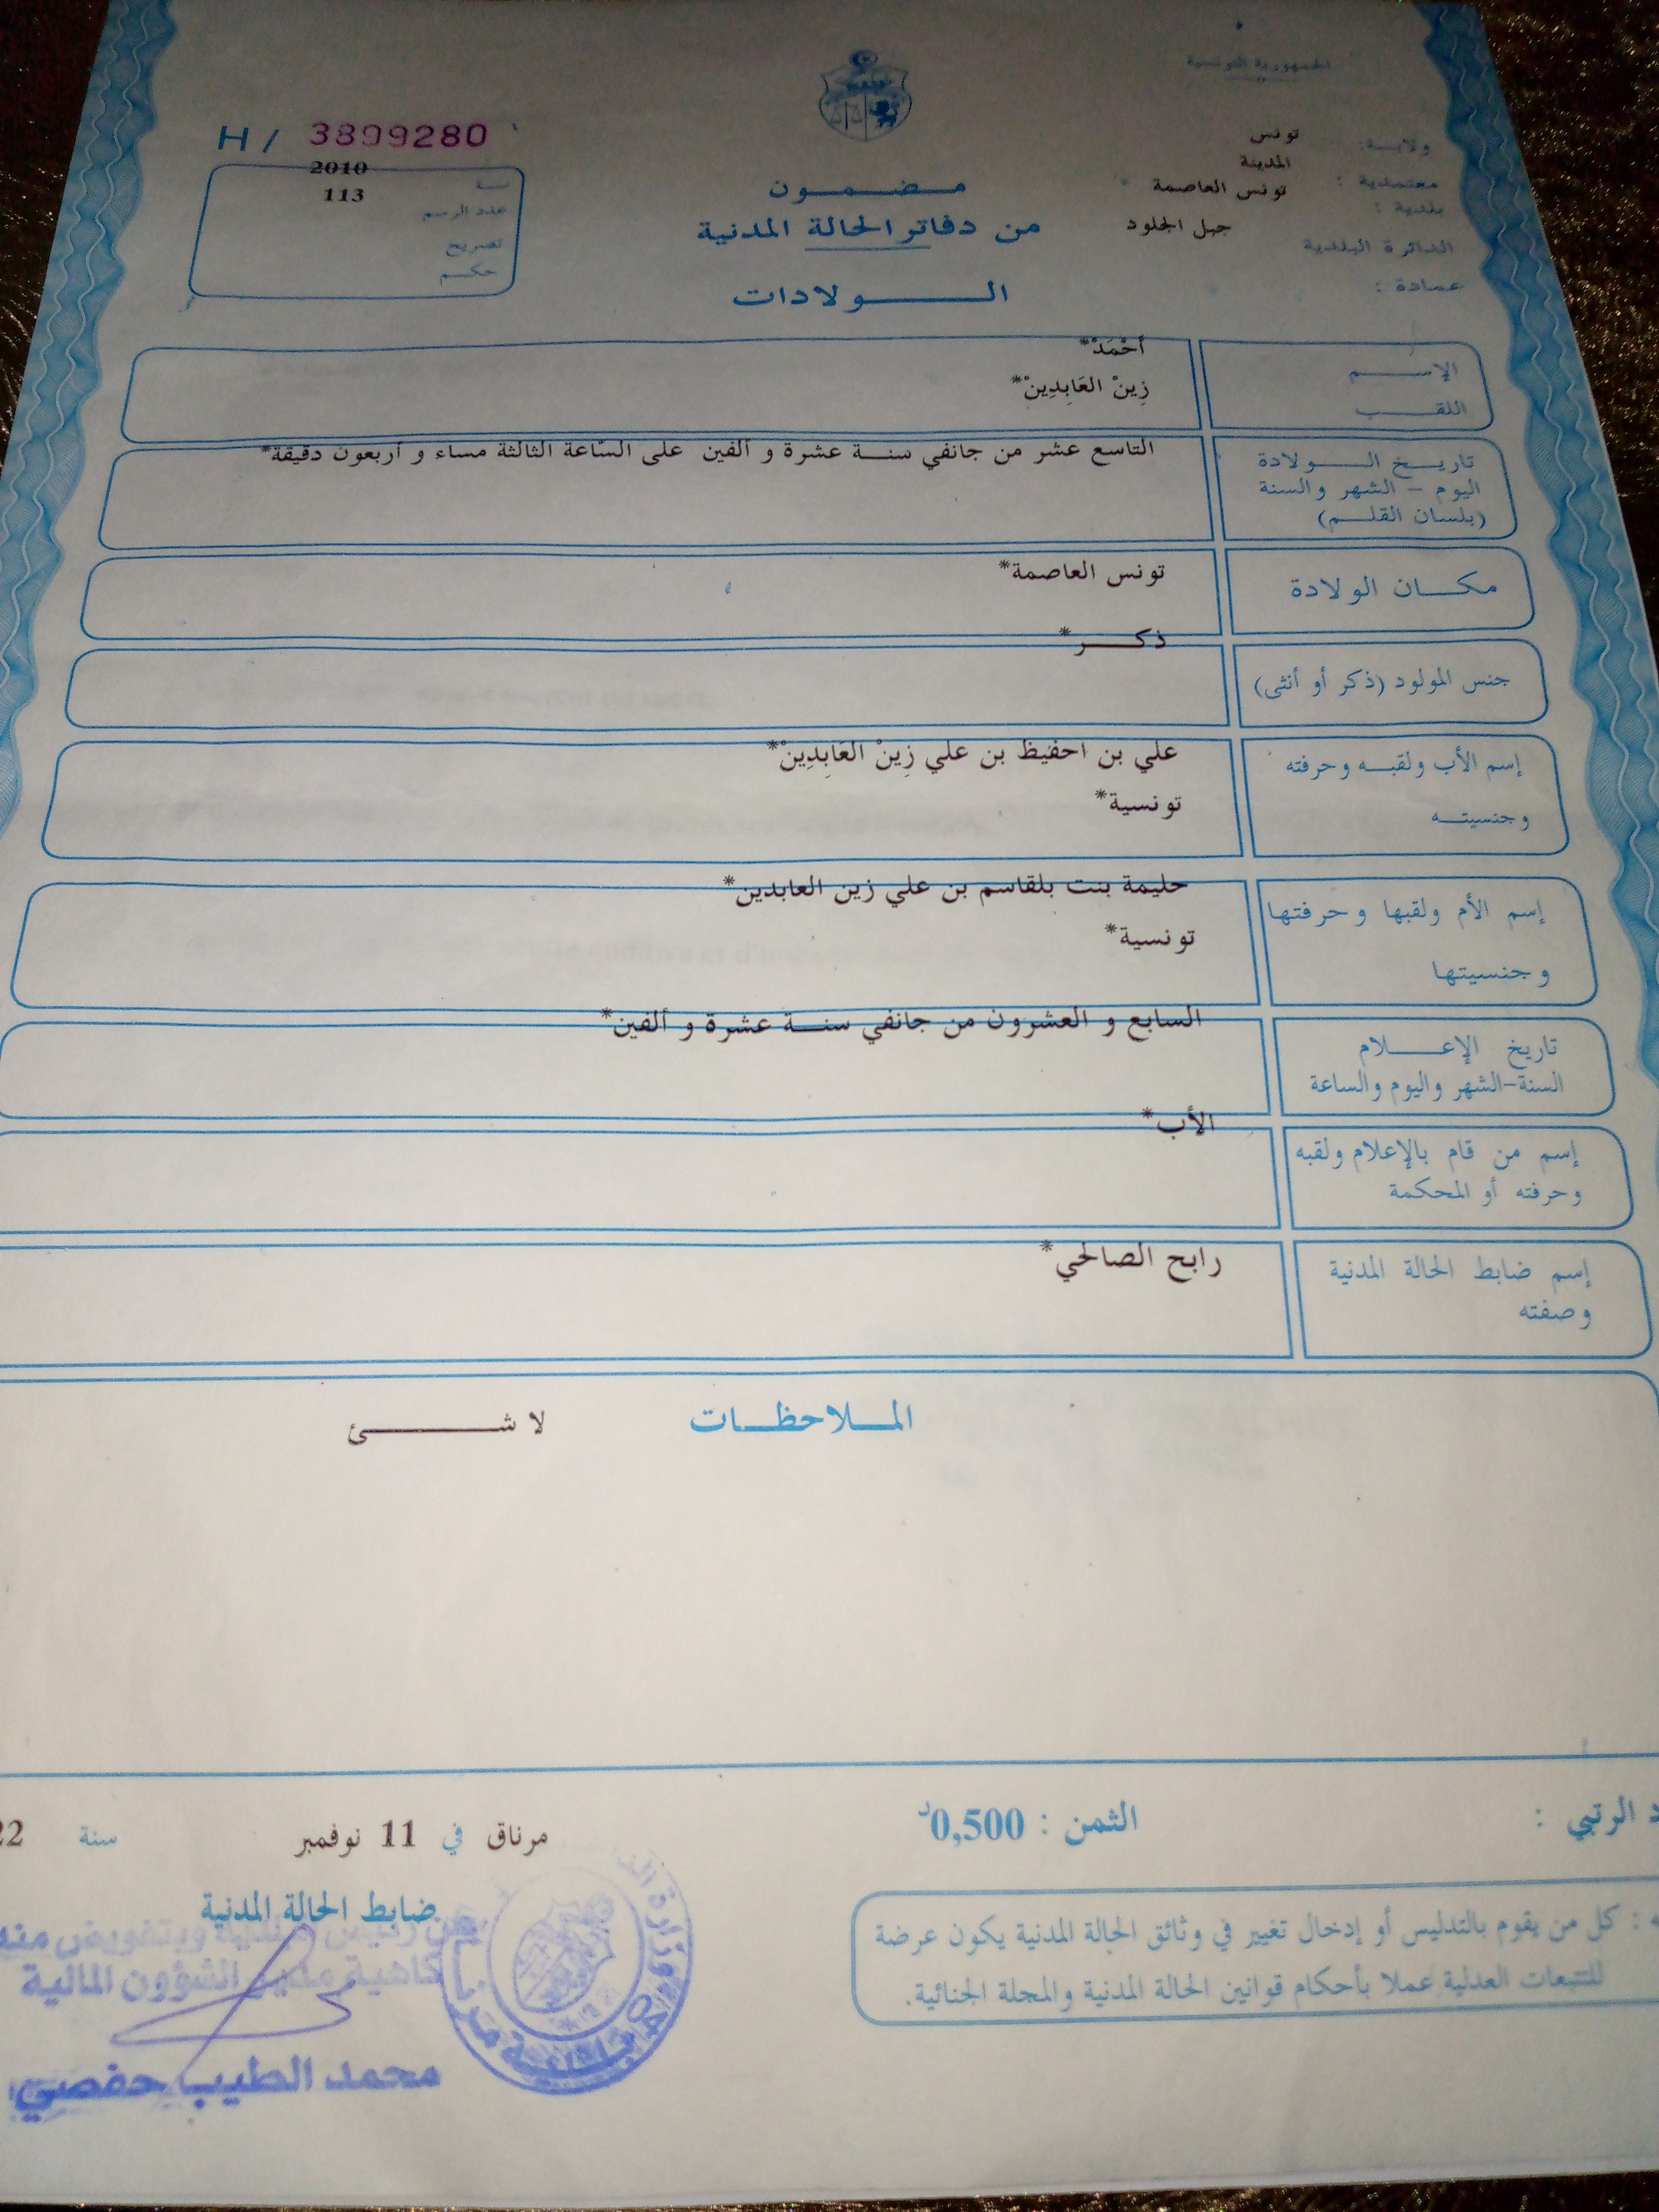 الجمهورية التونسية
ولاية: تونس
معتمدية : المدينة
بلدية : تونس العاصمة
الدائرة البلدية جبل الجلود
عمادة :
H / 3899280
سنة 2010
عدد الرسم 113
تصريح
حكم
مضمون
من دفاتر الحالة المدنية
الولادات
الإسم أَحْمَدْ*
اللقب زِينْ العَابِدِينْ*
تاريخ الولادة التاسع عشر من جانفي سنة عشرة و ألفين على السّاعة الثالثة مساء و أربعون دقيقة*
اليوم – الشهر والسنة
(بلسان القلم)
مكان الولادة تونس العاصمة*
جنس المولود (ذكر أو أنثى) ذكر*
إسم الأب ولقبه وحرفته علي بن احفيظ بن علي زِينْ العَابِدِينْ*
وجنسيته تونسية*
إسم الأم ولقبها وحرفتها حليمة بنت بلقاسم بن علي زين العابدين*
وجنسيتها تونسية*
تاريخ الإعلام السابع و العشرون من جانفي سنة عشرة و ألفين*
السنة-الشهر واليوم والساعة
إسم من قام بالإعلام ولقبه الأب*
وحرفته أو المحكمة
إسم ضابط الحالة المدنية رابح الصالحي*
وصفته
الملاحظات لا شئ
د الرتبي :
الثمن : 0,500د
مرناق في 11 نوفمبر سنة 22
ضابط الحالة المدنية
عن رئيس البلدية وبتفويض منه
كاهية مدير الشؤون المالية
محمد الطيب حفصي
ه : كل من يقوم بالتدليس أو إدخال تغيير في وثائق الحالة المدنية يكون عرضة
للتتبعات العدلية عملا بأحكام قوانين الحالة المدنية والمجلة الجنائية.